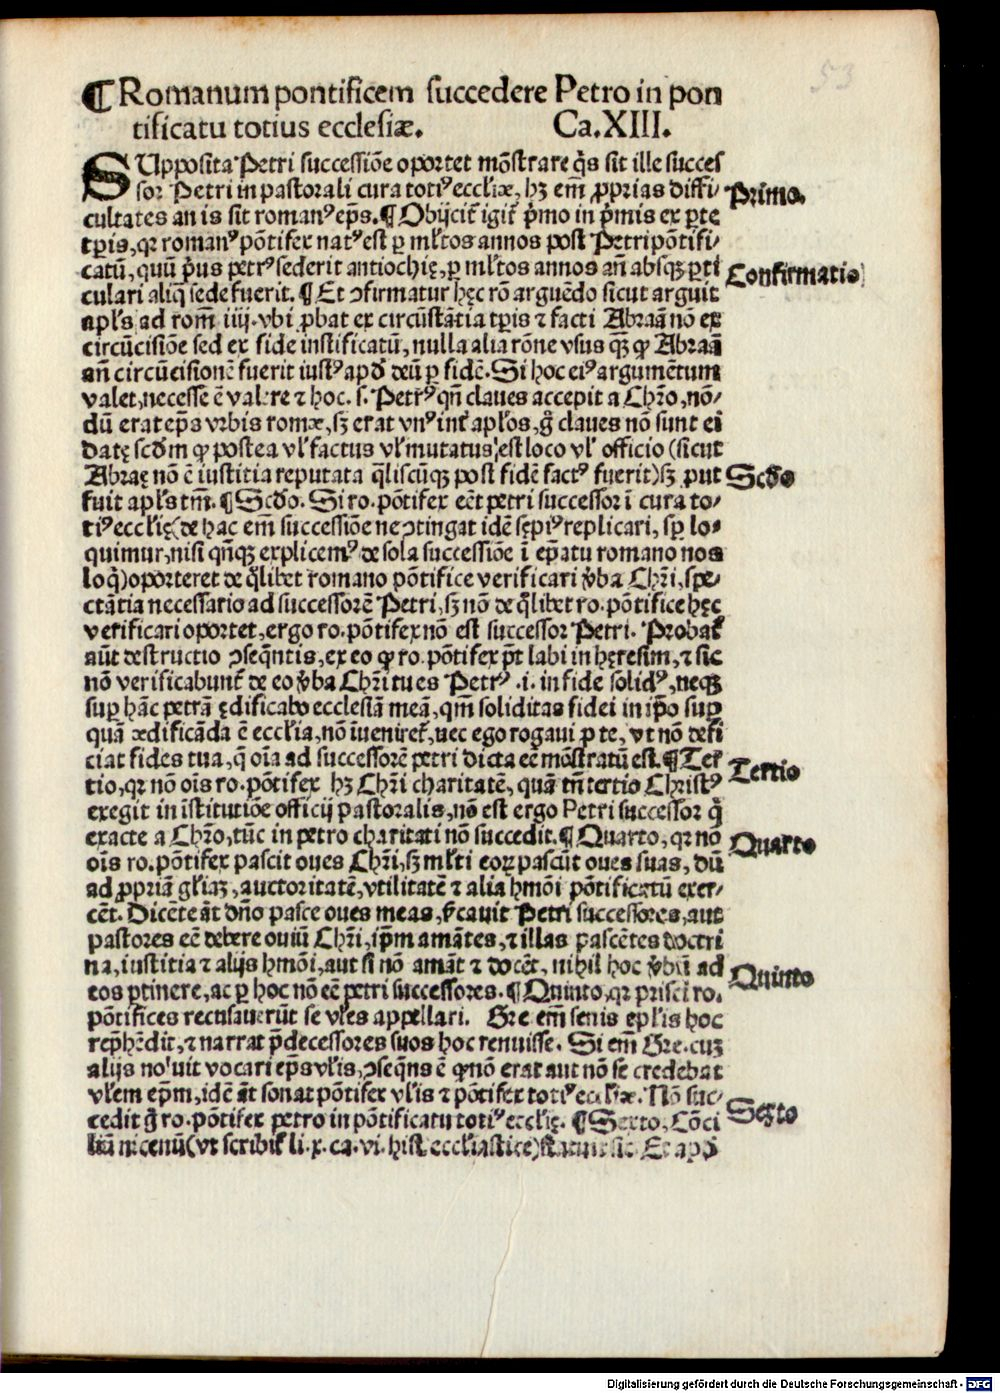 53
¶ Romanum pontificem succedere Petro in pon
tificatu totius ecclesiæ. Ca.XIII.
SUpposita Petri successiõe oportet mõstrare q̃s sit ille succes
sor Petri in pastorali cura totiꝰ eccłiæ, hꝫ em̃ ꝓprias diffi/
cultates an is sit romanꝰ ep̃s. ¶ Obijcit̃ igit̃ p̃mo in p̃mis ex ꝑte
tꝑis, qꝛ romanꝰ põtifex natꝰ est ꝑ młtos annos post Petri põtifi/
catũ, quũ p̃us petrꝰ sederit antiochię, ꝑ młtos annos añ absqꝫ ꝑti
culari aliq̃ sede fuerit. ¶ Et ↄfirmatur hęc rõ arguẽdo sicut arguit
apłs ad rom̃ iiij. vbi ꝓbat ex circũstãtia tꝑis ⁊ facti Abraã nõ ex
circũcisiõe sed ex fide iustificatũ, nulla alia rõne vsus qꝫ ꝙ Abraã
añ circũcisionẽ fuerit iustꝰ apđ deũ ꝑ fidẽ. Si hoc eiꝰ argumẽtum
valet, necesse ẽ valere ⁊ hoc. s. Petrꝰ qñ claues accepit a Chr̃o, nõ/
dũ erat ep̃s vrbis romæ, sꝫ erat vnꝰ int̃ apłos, g̃ claues nõ sunt ei
datę scđm ꝙ postea vł factus vł mutatus est loco vł officio (sicut
Abraę nõ ẽ iustitia reputata q̃liscũqꝫ post fidẽ factꝰ fuerit) sꝫ ꝓut
fuit apłs tm̃. ¶ Scđo. Si ro. põtifex eẽt petri successor ĩ cura to/
tiꝰ eccłię (de hac em̃ successiõe ne ↄtingat idẽ sępiꝰ replicari, sꝑ lo/
quimur, nisi qñqꝫ explicemꝰ de sola successiõe ĩ ep̃atu romano nos
loq̃) oporteret de q̃libet romano põtifice verificari ṽba Chr̃i, spe/
ctãtia necessario ad successorẽ Petri, sꝫ nõ de q̃libet ro. põtifice hęc
verificari oportet, ergo ro. põtifex nõ est successor Petri. Probat̃
aũt destructio ↄseq̃ntis, ex eo ꝙ ro. põtifex p̃t labi in hęresim, ⁊ sic
nõ verificabunt̃ de eo ṽba Chr̃i tu es Petrꝰ .i. in fide solidꝰ, neqꝫ
suꝑ hãc petrã ędificabo ecclesiã meã, qm̃ soliditas fidei in ip̃o suꝑ
quã ædificãda ẽ eccłia, nõ ĩueniret̃, nec ego rogaui ꝓ te, vt nõ defi
ciat fides tua, q̃ oĩa ad successorẽ petri dicta eẽ mõstratũ est. ¶ Ter
tio, qꝛ nõ oĩs ro. põtifex hꝫ Chr̃i charitatẽ, quã tñ tertio Christꝰ
exegit in ĩstitutiõe officij pastoralis, nõ est ergo Petri successor q̃
exacte a Chr̃o, tũc in petro charitati nõ succedit. ¶ Quarto, qꝛ nõ
oĩs ro. põtifex pascit oues Chr̃i, sꝫ młti eoꝝ pascũt oues suas, dũ
ad ꝓpriã głiaꝫ, auctoritatẽ, vtilitatẽ ⁊ alia hmõi põtificatũ exer/
cẽt. Dicẽte ãt dño pasce oues meas, p̃cauit Petri successores, aut
pastores eẽ debere ouiũ Chr̃i, ip̃m amãtes, ⁊ illas pascẽtes doctri
na, iustitia ⁊ alijs hmõi, aut si nõ amãt ⁊ docẽt, nihil hoc ṽbũ ad
eos ꝑtinere, ac ꝑ hoc nõ eẽ petri successores. ¶ Quinto, qꝛ prisci ro.
põtifices recusauerũt se vłes appellari. Gre em̃ senis epłis hoc
rep̃hẽdit, ⁊ narrat p̃decessores suos hoc renuisse. Si em̃ Gre. cuꝫ
alijs noluit vocari ep̃s vłis, ↄseq̃ns ẽ ꝙ nõ erat aut nõ se credebat
vłem ep̃m, idẽ ãt sonat põtifex vłis ⁊ põtifex totiꝰ eccłiæ. Nõ suc/
cedit g̃ ro. põtifex petro in põtificatu totiꝰ eccłię. ¶ Sexto, Cõci
liũ nicenũ (vt scribit̃ li. x. ca. vi. hist. eccłiastice) statuit sic. Et apđ
Primo.
Confirmatio
Scđo
Tertio
Quarto
Quinto
Sexto
Digitalisierung gefördert durch die Deutsche Forschungsgemeinschaft - DFG